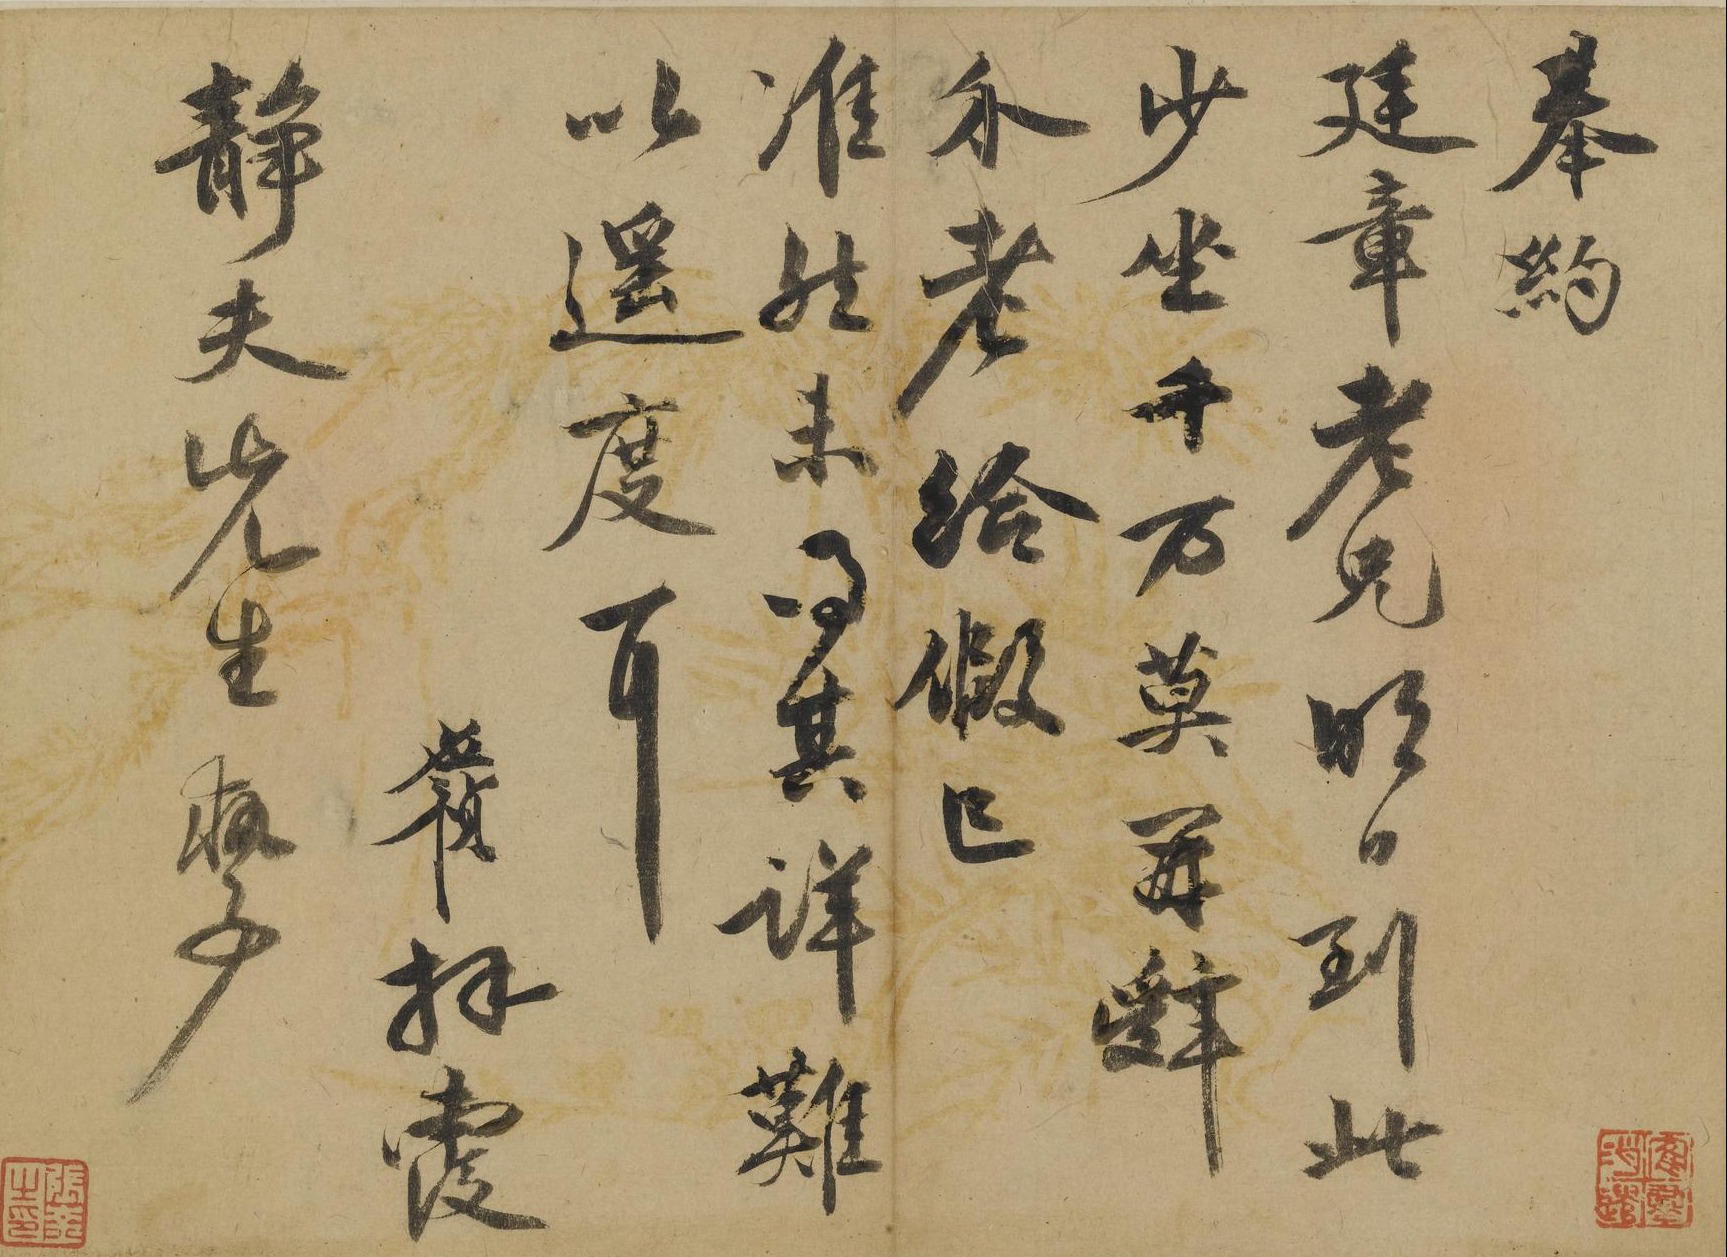 奉約
廷章老兄明日到此
少坐千万莫再辭
永老給假已
准然未得其詳難
以遥度耳
拜覆
静夫先生執事